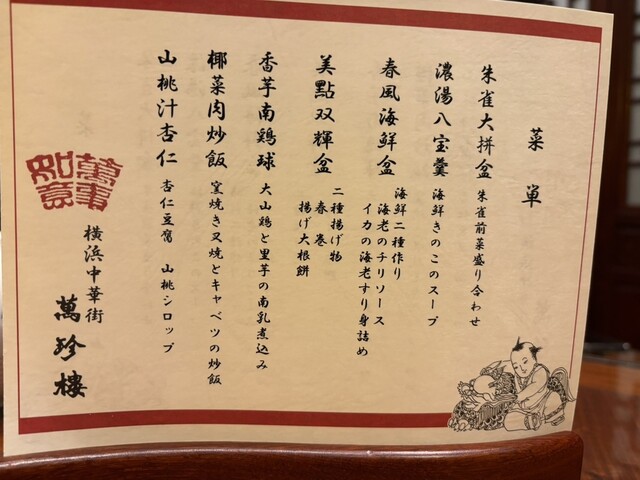 菜単
朱雀大拼盆 朱雀前菜盛り合わせ
濃湯八宝羹 海鮮きのこのスープ
春風海鮮盆 海鮮二種作り
海老のチリソース
イカの海老すり身詰め
美點双輝盆 二種揚げ物
春巻
揚げ大根餅
香芋南鶏球 大山鶏と里芋の南乳煮込み
椰菜肉炒飯 窯焼き叉焼とキャベツの炒飯
山桃汁杏仁 杏仁豆腐 山桃シロップ
萬事
如意
横浜中華街
萬珍樓